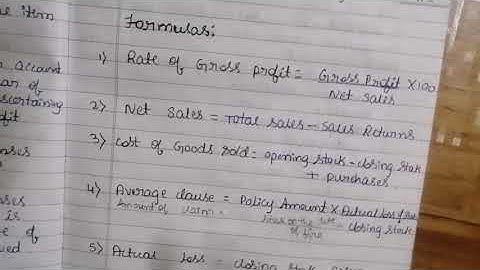 e item
Formulas:
1) Rate of Gross profit = Gross Profit X100
Net sales
Account
an of
scertaining
fit
2) Net sales = Total sales - Sales Returns
3) cost of Goods sold = opening stock - closing stock
+ purchases
enses
4) Average clause = Policy Amount X Actual loss of
Amount of claim = Stock on the date closing stock
of fire
nses
is
e of
ved
5) Actual loss = closing stock